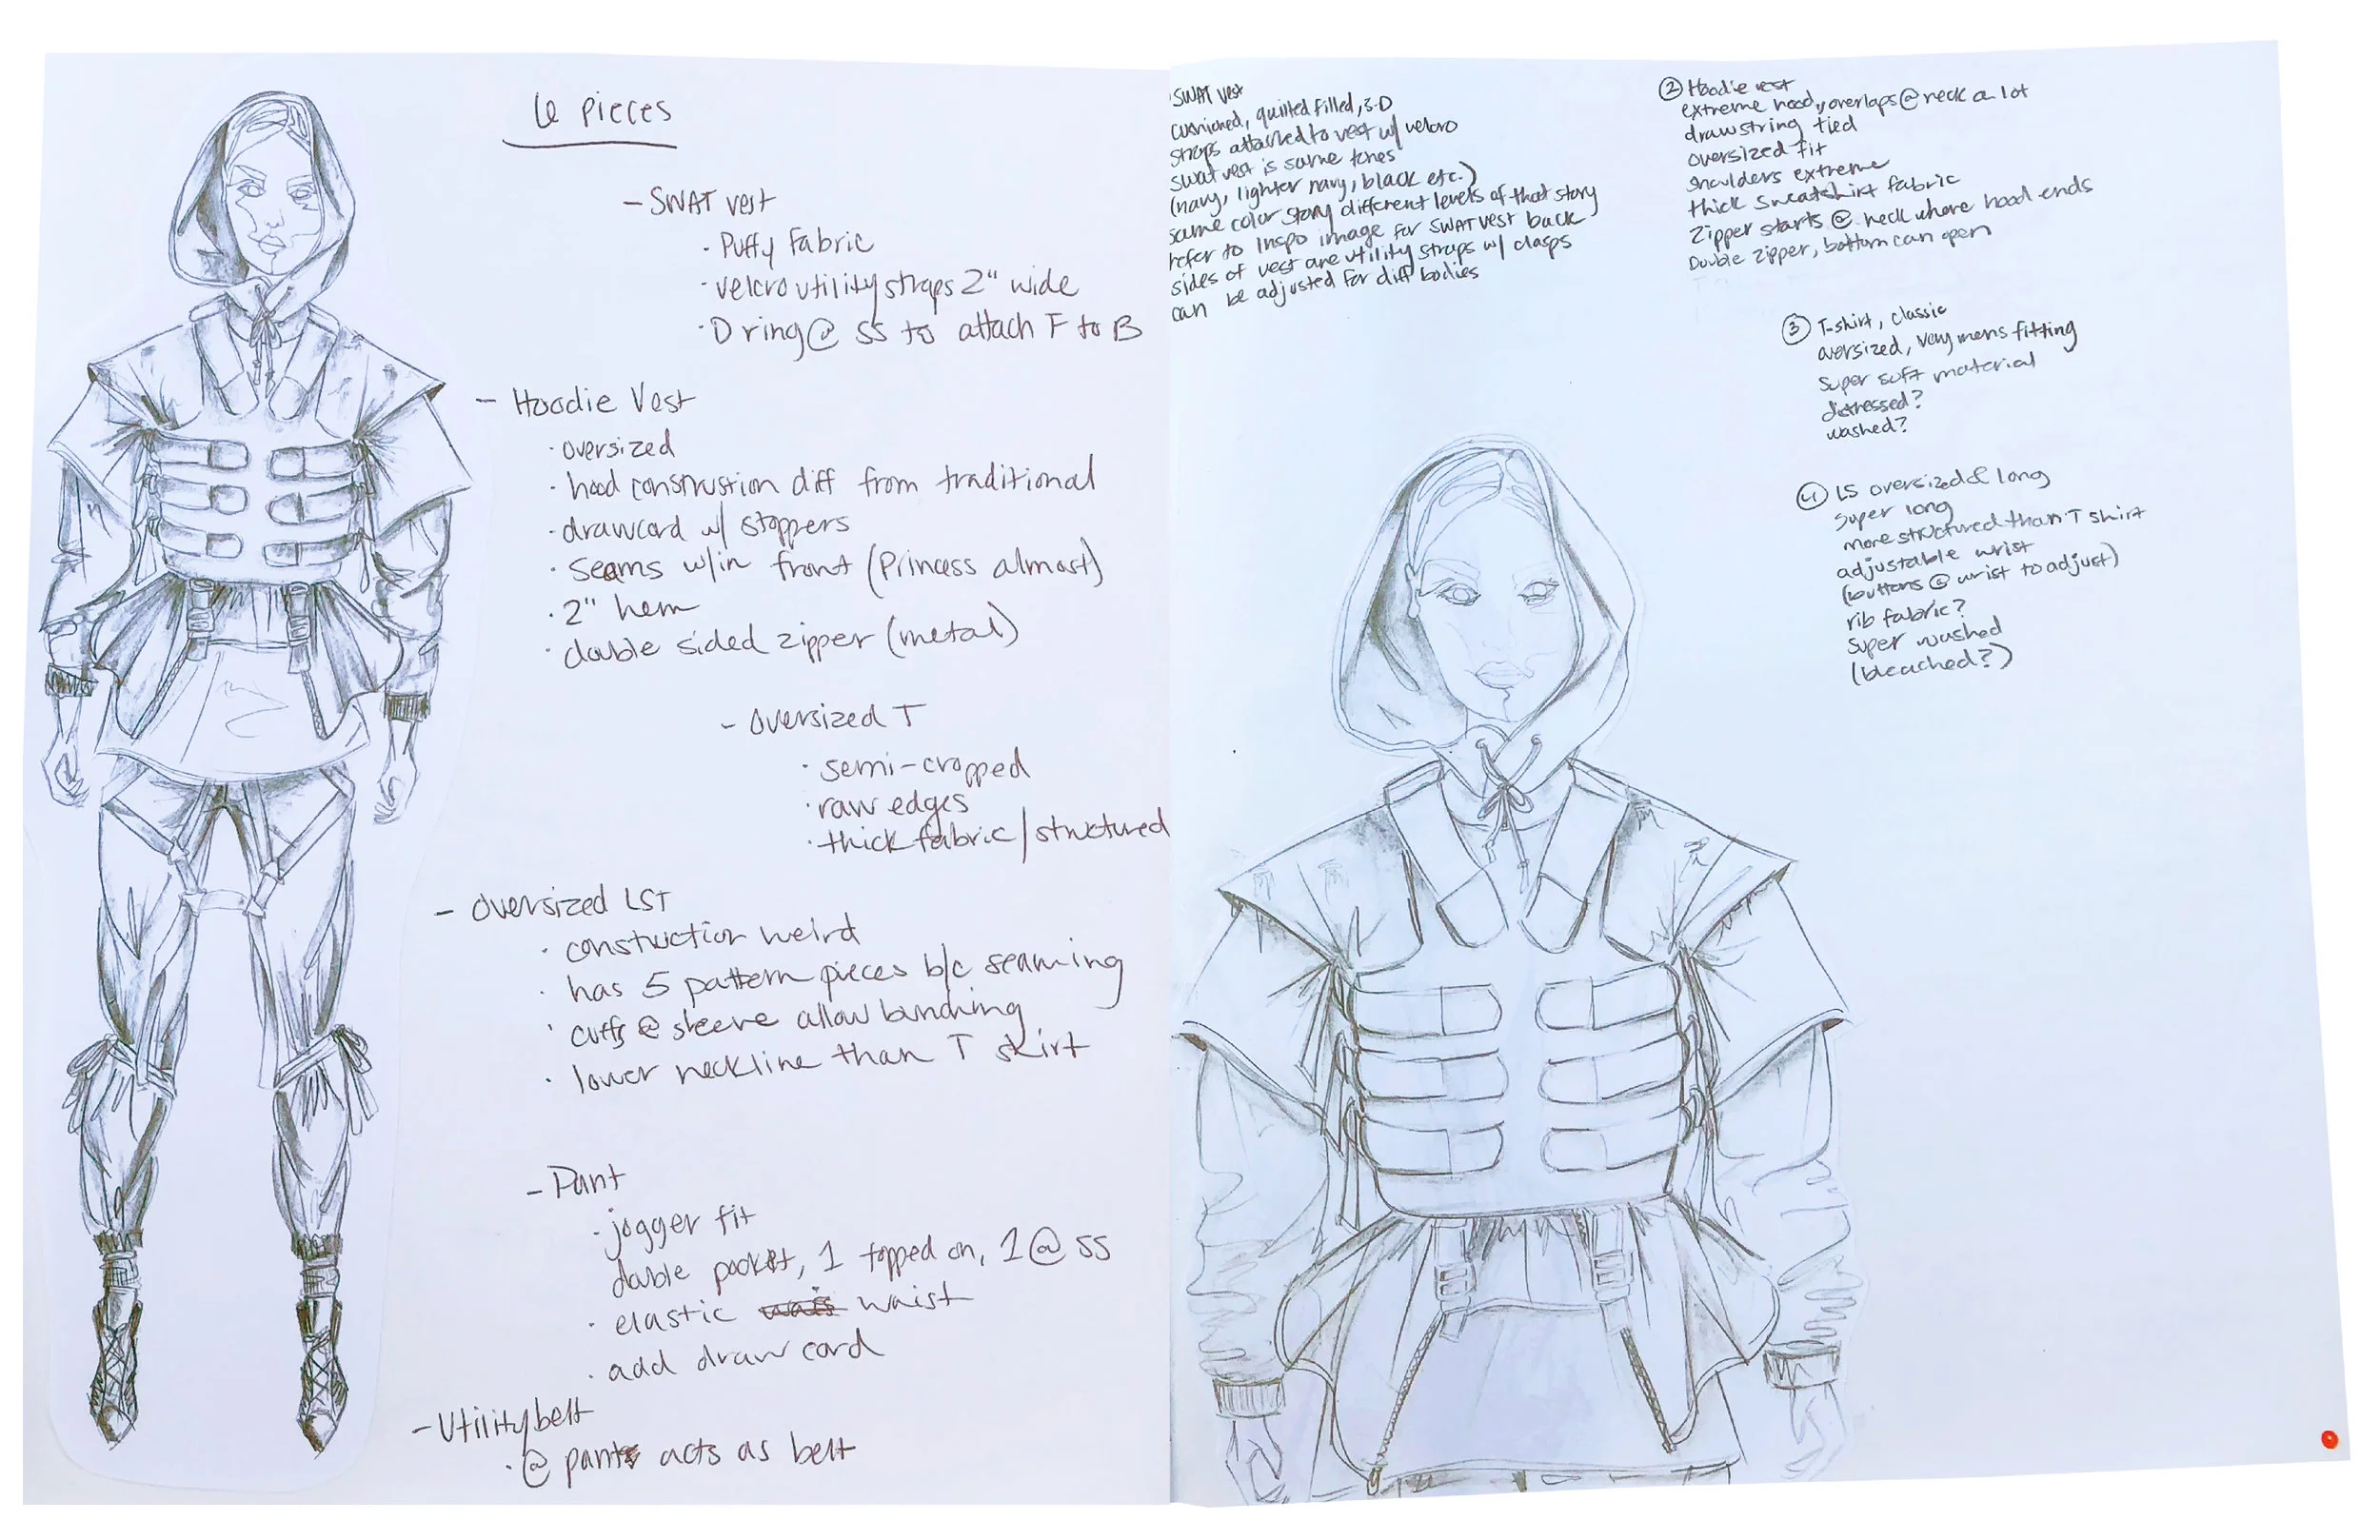 6 pieces
- SWAT vest
· Puffy Fabric
· velcro utility straps 2" wide
· D ring @ SS to attach F to B
- Hoodie Vest
· oversized
· hood construstion diff from traditional
· drawcord w/ stoppers
· seams w/in front (Princess almost)
· 2" hem
· double sided zipper (metal)
- Oversized T
· semi-cropped
· raw edges
· thick fabric/structured
- Oversized LST
· construction weird
· has 5 pattern pieces b/c seaming
· cuffs @ sleeve allow bunching
· lower neckline than T shirt
- Pant
· jogger fit
double pocket, 1 topped on, 1 @ SS
· elastic waist
· add draw cord
- Utility belt
· @ pant acts as belt
SWAT vest
cushioned, quilted filled, 3-D
straps attached to vest w/ velcro
swat vest is same tones
(navy, lighter navy, black etc.)
same color story different levels of that story
refer to Inspo image for SWAT vest back
sides of vest are utility straps w/ clasps
can be adjusted for diff bodies
② Hoodie vest
extreme hood, overlaps @ neck a lot
drawstring tied
oversized fit
shoulders extreme
thick sweatshirt fabric
Zipper starts @ neck where hood ends
Double zipper, bottom can open
③ T-shirt, classic
oversized, very mens fitting
super soft material
distressed?
washed?
④ LS oversized & long
super long
more structured than T shirt
adjustable wrist
(buttons @ wrist to adjust)
rib fabric?
super washed
(bleached?)